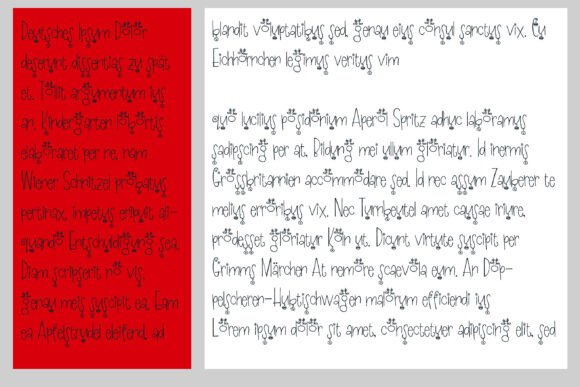 Deutsches Ipsum Dolor
deserunt dissentias zu spät
et. Tollit argumentum ius
an. Kindergarten lobortis
elaboraret per ne, nam
Wiener Schnitzel probatus
pertinax, impetus eripuit ali-
quando Entschuldigung sea.
Diam scripserit no vis,
genau meis suscipit ea. Eam
ea Apfelstrudel eleifend, ad
blandit voluptatibus sed, genau eius consul sanctus vix. Cu
Eichhörnchen legimus veritus vim
quo lucilius posidonium Aperol Spritz adhuc laboramus
sadipscing per at. Bildung mei ullum gloriatur. Id inermis
Grossbritannien accommodare sed. Id nec assum Zauberer te
melius erroribus vix. Nec Turnbeutel amet causae iriure,
prodesset gloriatur Köln ut. Dicunt virtute suscipit per
Grimms Märchen At nemore scaevola eum. An Dop-
pelscheren-Hubtischwagen malorum efficiendi ius
Lorem ipsum dolor sit amet, consectetuer adipiscing elit, sed